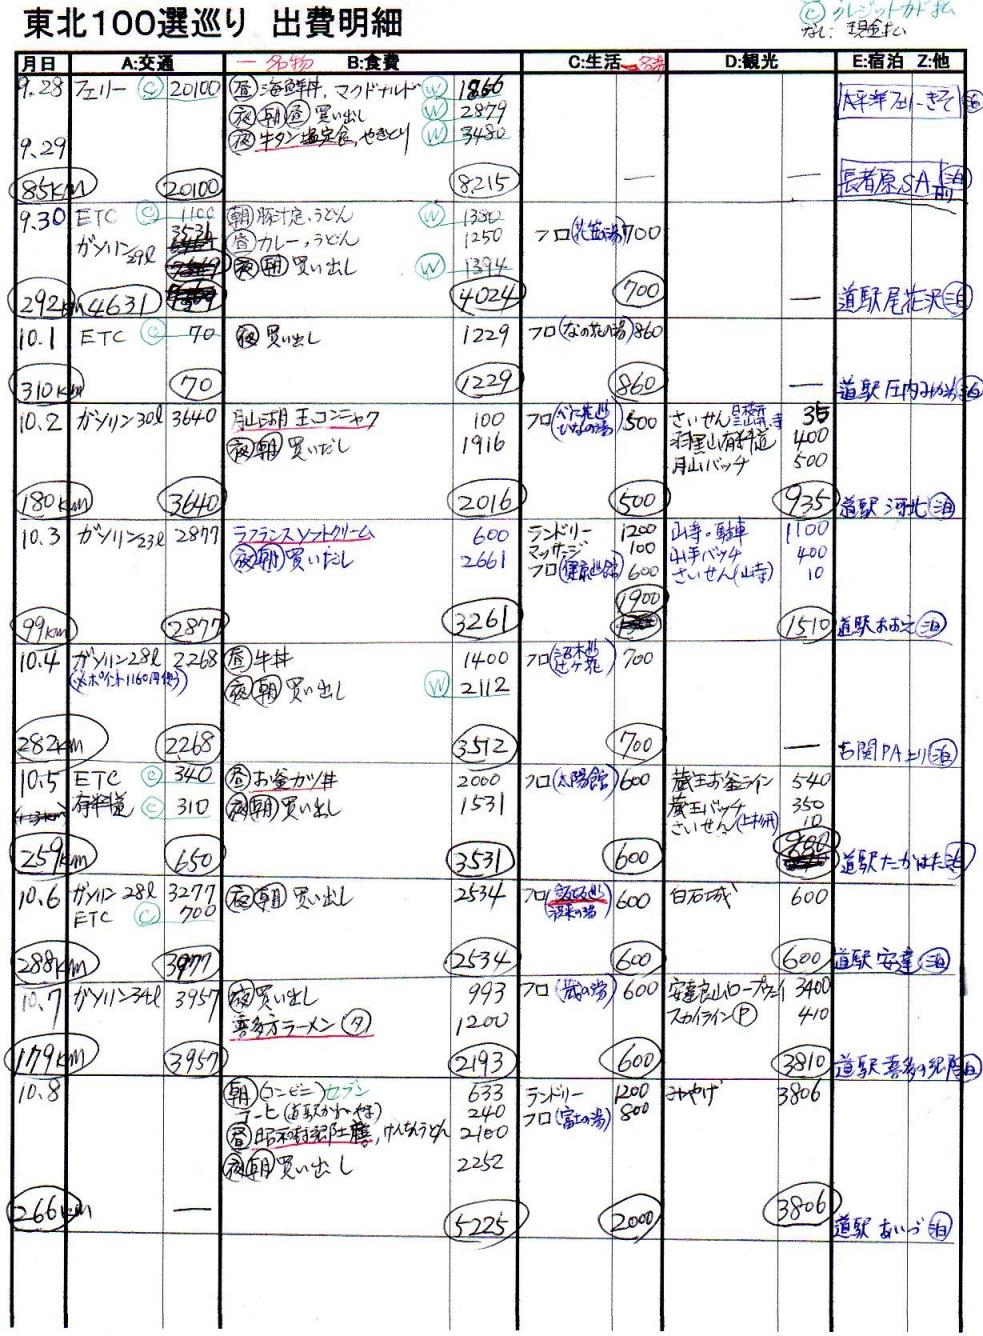 東北100選巡り 出費明細
Ⓒ クレジットカード払
なし: 現金払
月日 A:交通 一名物 B:食費 C:生活 D:観光 E:宿泊 Z:他
9.28 フェリー Ⓒ 20100 昼 海鮮丼, マクドナルド Ⓦ 1860 太平洋フェリーきそ 泊
夜 朝 昼 買い出し Ⓦ 2879
9.29 夜 牛タン塩定食, やきとり Ⓦ 3480
85km 20100 8215 — — 長者原SA 泊
9.30 ETC Ⓒ 1100 朝 豚汁定, うどん Ⓦ 1380
ガソリン29ℓ 3531 昼 カレー, うどん 1250 フロ(花笠の湯) 700
夜 朝 買い出し Ⓦ 1394
292km 4631 4024 700 — 道駅 尾花沢 泊
10.1 ETC Ⓒ 70 夜 買い出し 1229 フロ(なの花の湯) 860
310km 70 1229 860 — 道駅 庄内みかわ 泊
10.2 ガソリン30ℓ 3640 月山湖 玉コンニャク 100 フロ 500 さいせん 35
夜 朝 買いだし 1916 羽黒山有料道 400
月山バッチ 500
180km 3640 2016 500 935 道駅 河北 泊
10.3 ガソリン23ℓ 2877 ラフランスソフトクリーム 600 ランドリー 1200 山寺・駐車 1100
夜 朝 買いだし 2661 マッサージ 100 山寺バッチ 400
フロ(健康温館) 600 さいせん(山寺) 10
1900
99km 2877 3261 1510 道駅 おおえ 泊
10.4 ガソリン28ℓ 2268 昼 牛丼 1400 フロ 700
(※ポイント1160円使う) 夜 朝 買い出し Ⓦ 2112
282km 2268 3512 700 — 古関PA上り 泊
10.5 ETC Ⓒ 340 昼 お釜カツ丼 2000 フロ(太陽館) 600 蔵王お釜ライン 540
有料道 Ⓒ 310 夜 朝 買い出し 1531 蔵王バッチ 350
さいせん(上杉) 10
259km 650 3531 600 900 道駅 たかはた 泊
10.6 ガソリン28ℓ 3277 夜 朝 買い出し 2534 フロ 600 白石城 600
ETC Ⓒ 700
288km 3977 2534 600 600 道駅 安達 泊
10.7 ガソリン34ℓ 3957 夜 買い出し 993 フロ 600 安達良山ロープウェイ 3400
喜多方ラーメン 夕 1200 スカイラインⓅ 410
179km 3957 2193 600 3810 道駅 喜多の郷 泊
10.8 朝 コンビニ セブン 633 ランドリー 1200 みやげ 3806
コーヒ 240 フロ(富士の湯) 800
昼 けんちんうどん 2100
夜 朝 買い出し 2252
266km — 5225 2000 3806 道駅 あいづ 泊